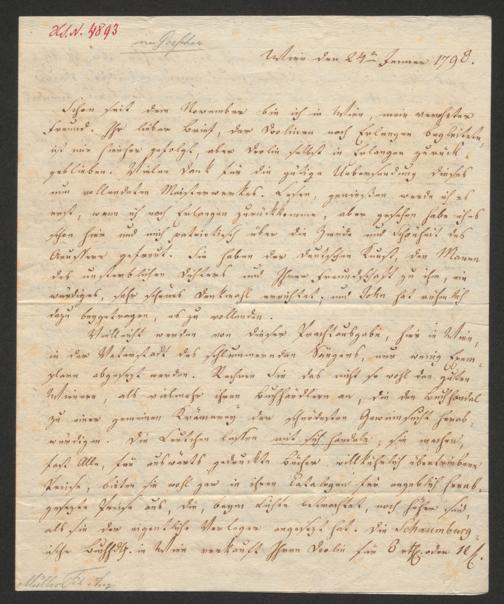 H.I.N. 4893
an Göschen
Wien den 24ten Jenner 1798.
Schon seit dem November bin ich in Wien, mein verehrter
Freund. Ihr lieber Brief, der Oberon nach Erlangen begleitete,
ist mir hieher gefolgt, aber Oberon selbst in Erlangen zurück-
geblieben. Vielen Dank für die gütige Uebersendung dieses
nun vollendeten Meisterwerkes. Lesen, genießen werde ich es
erst, wenn ich nach Erlangen zurückkomme, aber gesehen habe ich es
schon hier und mich patriotisch über die Zierde und Schönheit des
Aeussern gefreut. Sie haben der deutschen Kunst, den Manen
des unsterblichen Dichters und Ihrer Freundschaft zu ihm, ein
würdiges, sehr schönes Denkmahl errichtet, und John hat rühmlich
dazu beygetragen, es zu vollenden.
Vielleicht werden von dieser Prachtausgabe, hier in Wien,
in der Vaterstadt des schlummernden Sängers, nur wenig Exem-
plare abgesetzt werden. Rechnen Sie das nicht so wohl den guten
Wienern, als vielmehr ihren Buchhändlern an, die den Buchhandel
zu einer gemeinen Krämerey der schnödesten Gewinnsucht herab-
würdigen. Die Leutchen lassen mit sich handeln; sie machen,
fast Alle, für auswärts gedruckte Bücher willkührlich übertriebene
Preise, bieten sie wohl gar in ihren Catalogen für angeblich herab-
gesetzte Preise aus, die, beym Lichte betrachtet, noch höher sind,
als sie der eigentliche Verleger angesetzt hat. Die Schaumburg-
ische Buchhdlg. in Wien verkauft Ihren Oberon für 6 rthl. oder 12 f.